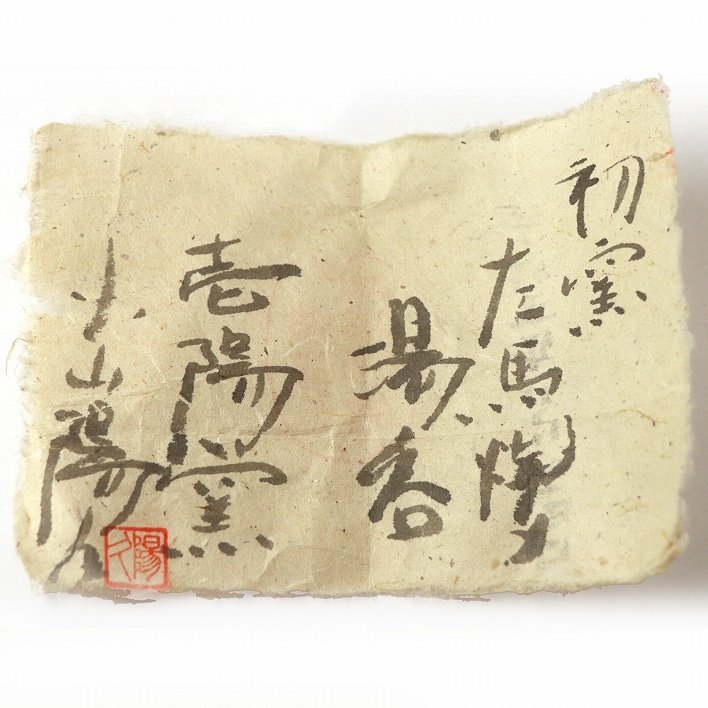 初窯
左馬焼
湯呑
壱陽窯
小山陽久
陽久